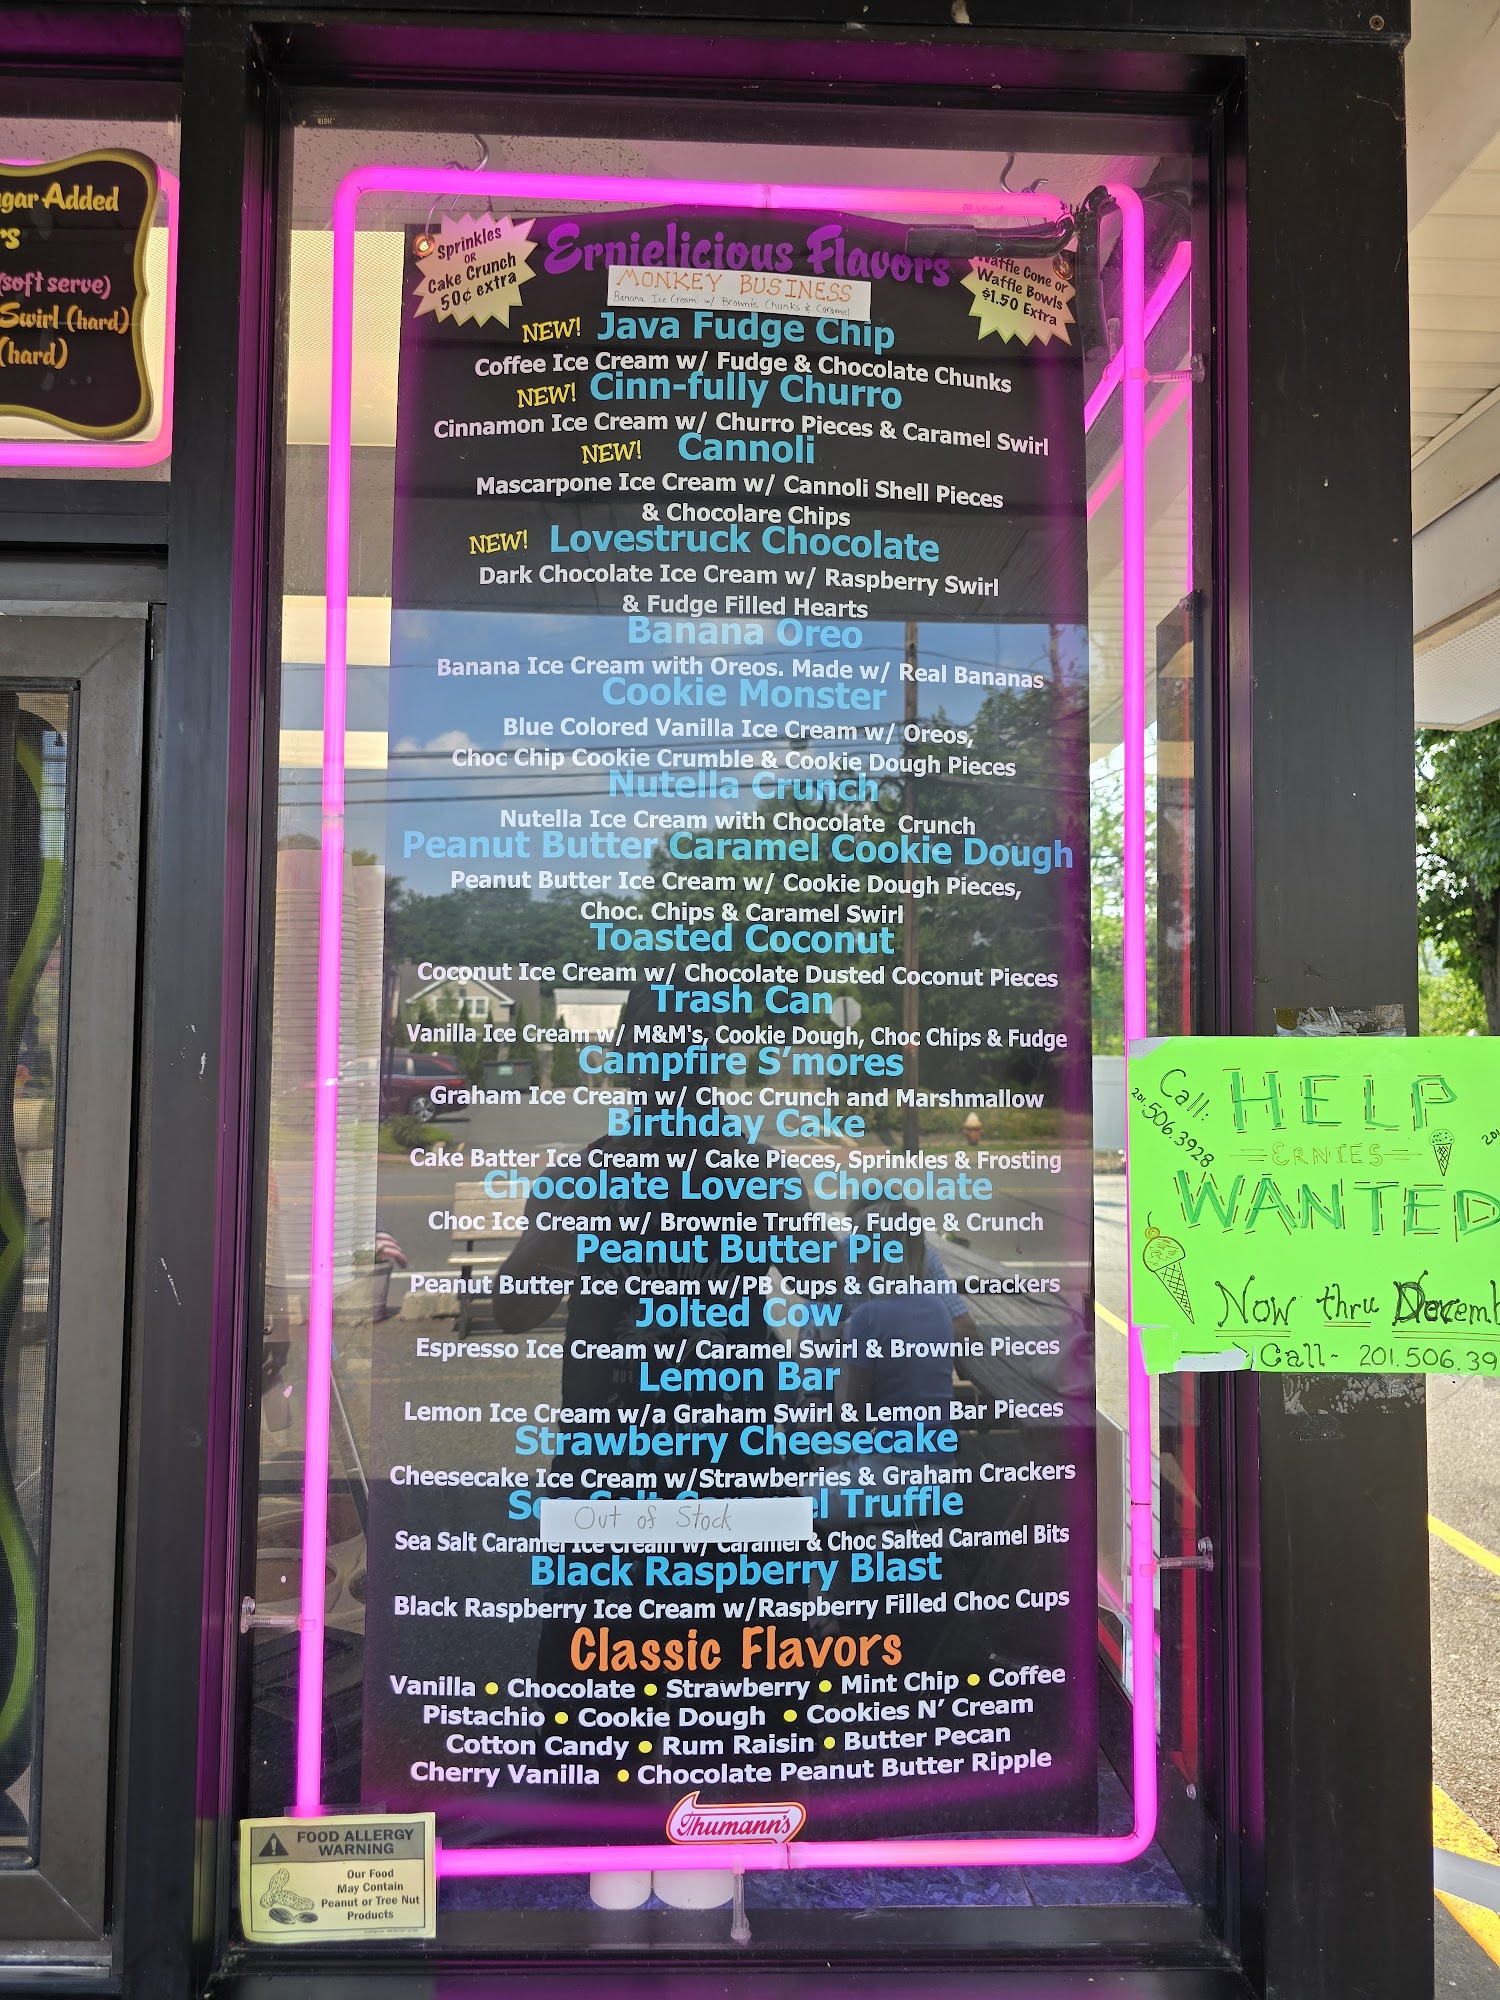 gar Added
(soft serve)
Swirl (hard)
(hard)
Sprinkles
OR
Cake Crunch
50¢ extra
Ernielicious Flavors
Waffle Cone or
Waffle Bowls
$1.50 Extra
MONKEY BUSINESS
Banana Ice Cream w/ Brownie Chunks & Caramel
NEW! Java Fudge Chip
Coffee Ice Cream w/ Fudge & Chocolate Chunks
NEW! Cinn-fully Churro
Cinnamon Ice Cream w/ Churro Pieces & Caramel Swirl
NEW! Cannoli
Mascarpone Ice Cream w/ Cannoli Shell Pieces
& Chocolare Chips
NEW! Lovestruck Chocolate
Dark Chocolate Ice Cream w/ Raspberry Swirl
& Fudge Filled Hearts
Banana Oreo
Banana Ice Cream with Oreos. Made w/ Real Bananas
Cookie Monster
Blue Colored Vanilla Ice Cream w/ Oreos,
Choc Chip Cookie Crumble & Cookie Dough Pieces
Nutella Crunch
Nutella Ice Cream with Chocolate Crunch
Peanut Butter Caramel Cookie Dough
Peanut Butter Ice Cream w/ Cookie Dough Pieces,
Choc. Chips & Caramel Swirl
Toasted Coconut
Coconut Ice Cream w/ Chocolate Dusted Coconut Pieces
Trash Can
Vanilla Ice Cream w/ M&M's, Cookie Dough, Choc Chips & Fudge
Campfire S'mores
Graham Ice Cream w/ Choc Crunch and Marshmallow
Birthday Cake
Cake Batter Ice Cream w/ Cake Pieces, Sprinkles & Frosting
Chocolate Lovers Chocolate
Choc Ice Cream w/ Brownie Truffles, Fudge & Crunch
Peanut Butter Pie
Peanut Butter Ice Cream w/PB Cups & Graham Crackers
Jolted Cow
Espresso Ice Cream w/ Caramel Swirl & Brownie Pieces
Lemon Bar
Lemon Ice Cream w/a Graham Swirl & Lemon Bar Pieces
Strawberry Cheesecake
Cheesecake Ice Cream w/Strawberries & Graham Crackers
Sea Salt Caramel Truffle
Out of Stock
Sea Salt Caramel Ice Cream w/ Caramel & Choc Salted Caramel Bits
Black Raspberry Blast
Black Raspberry Ice Cream w/Raspberry Filled Choc Cups
Classic Flavors
Vanilla • Chocolate • Strawberry • Mint Chip • Coffee
Pistachio • Cookie Dough • Cookies N' Cream
Cotton Candy • Rum Raisin • Butter Pecan
Cherry Vanilla • Chocolate Peanut Butter Ripple
Thumann's
FOOD ALLERGY
WARNING
Our Food
May Contain
Peanut or Tree Nut
Products
Call:
201.506.3928
HELP
ERNIES
WANTED
Now thru Decemb
Call- 201.506.39